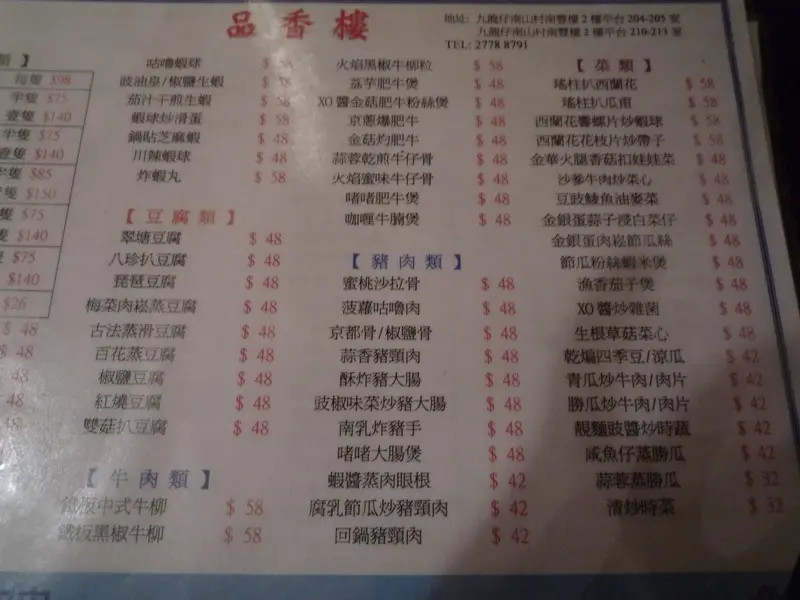 品香樓
地址: 九龍仔南山村南豐樓 2 樓平台 204-205 室
九龍仔南山村南豐樓 2 樓平台 210-213 室
TEL: 2778 8791
類】
每隻 $98
半隻 $75
壹隻 $140
半隻 $75
壹隻 $140
半隻 $85
隻 $150
隻 $75
隻 $140
隻 $75
$140
$26
$ 48
$ 48
48
48
咕嚕蝦球 $ 58
豉油皇/椒鹽生蝦 $ 58
茄汁干煎生蝦 $ 58
蝦球炒滑蛋 $ 58
鍋貼芝麻蝦 $ 48
川辣蝦球 $ 48
炸蝦丸 $ 58
【豆腐類】
翠塘豆腐 $ 48
八珍扒豆腐 $ 48
琵琶豆腐 $ 48
梅菜肉崧蒸豆腐 $ 48
古法蒸滑豆腐 $ 48
百花蒸豆腐 $ 48
椒鹽豆腐 $ 48
紅燒豆腐 $ 48
雙菇扒豆腐 $ 48
【牛肉類】
鐵板中式牛柳 $ 58
鐵板黑椒牛柳 $ 58
火焰黑椒牛柳粒 $ 58
荔芋肥牛煲 $ 48
XO 醬金菇肥牛粉絲煲 $ 48
京蔥爆肥牛 $ 48
金菇灼肥牛 $ 48
蒜蓉乾煎牛仔骨 $ 48
火焰蜜味牛仔骨 $ 48
啫啫肥牛煲 $ 48
咖喱牛腩煲 $ 48
【豬肉類】
蜜桃沙拉骨 $ 48
菠蘿咕嚕肉 $ 48
京都骨/椒鹽骨 $ 48
蒜香豬頸肉 $ 48
酥炸豬大腸 $ 48
豉椒味菜炒豬大腸 $ 48
南乳炸豬手 $ 48
啫啫大腸煲 $ 48
蝦醬蒸肉眼根 $ 42
腐乳節瓜炒豬頸肉 $ 42
回鍋豬頸肉 $ 42
【菜類】
瑤柱扒西蘭花 $ 58
瑤柱扒瓜甫 $ 58
西蘭花響螺片炒蝦球 $ 58
西蘭花花枝片炒帶子 $ 58
金華火腿香菇扣娃娃菜 $ 48
沙爹牛肉炒菜心 $ 48
豆豉鯪魚油麥菜 $ 48
金銀蛋蒜子浸白菜仔 $ 48
金銀蛋肉崧節瓜絲 $ 48
節瓜粉絲蝦米煲 $ 48
漁香茄子煲 $ 48
XO 醬炒雜菌 $ 48
生根草菇菜心 $ 48
乾煸四季豆/涼瓜 $ 42
青瓜炒牛肉/肉片 $ 42
勝瓜炒牛肉/肉片 $ 42
靚麵豉醬炒時蔬 $ 42
咸魚仔蒸勝瓜 $ 42
蒜蓉蒸勝瓜 $ 32
清炒時菜 $ 32